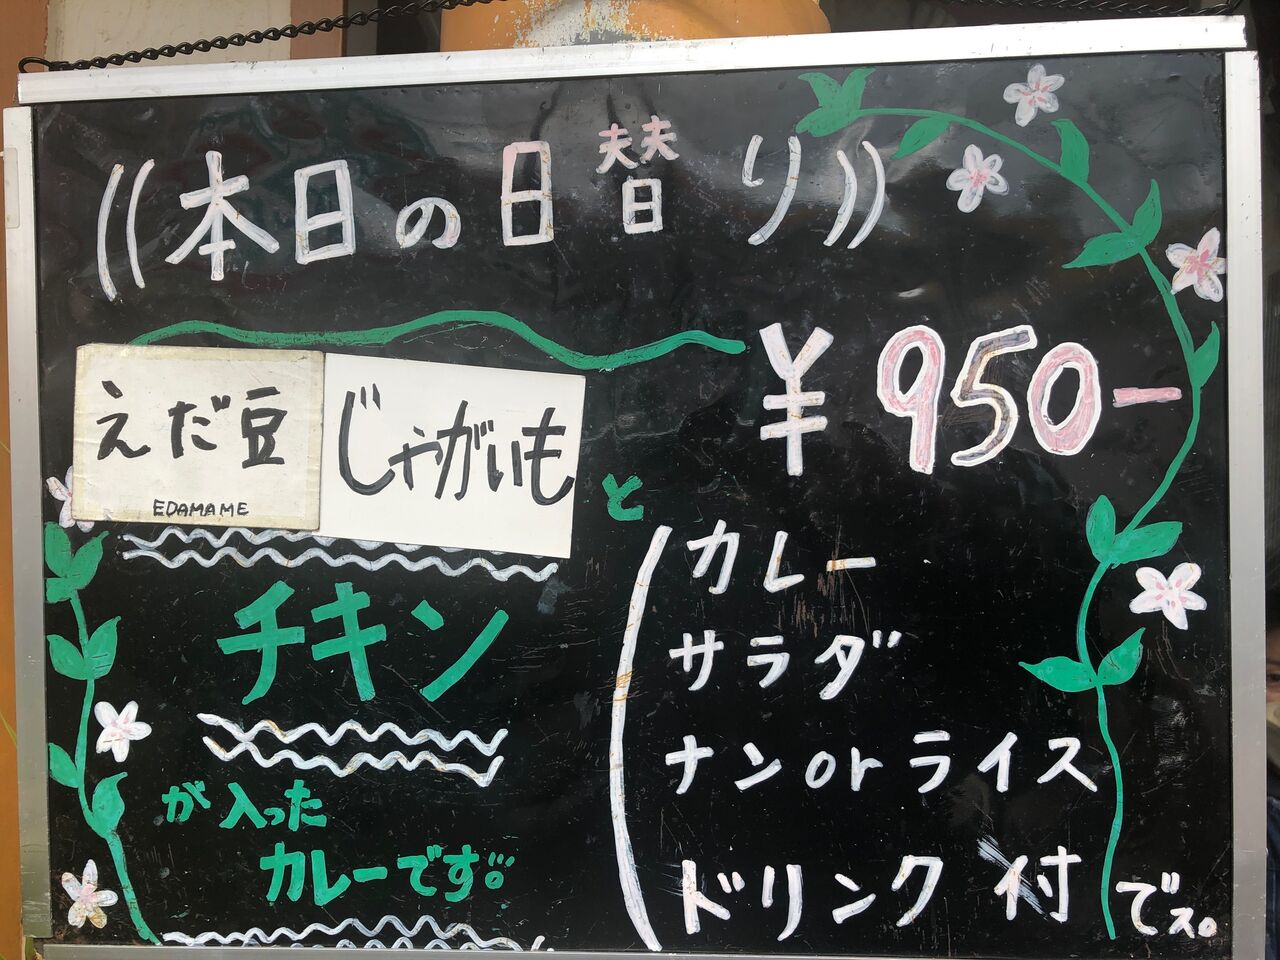 ((本日の日替り))
えだ豆 じゃがいも と
EDAMAME
チキン
が入った
カレーです。
¥950-
カレー
サラダ
ナンorライス
ドリンク付でス。